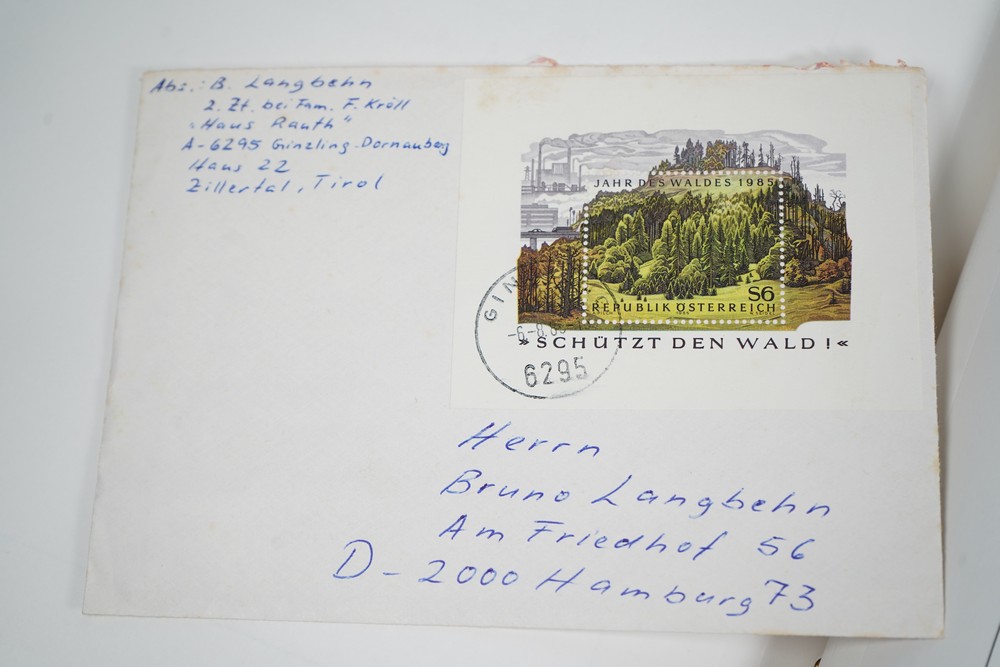 Abs.: B. Langbehn
z. Zt. bei Fam. F. Kröll
"Haus Rauth"
A-6295 Ginzling-Dornauberg
Haus 22
Zillertal, Tirol
JAHR DES WALDES 1985
S6
REPUBLIK ÖSTERREICH
»SCHÜTZT DEN WALD!«
GIN
-6.-8.85
6295
Herrn
Bruno Langbehn
Am Friedhof 56
D-2000 Hamburg 73